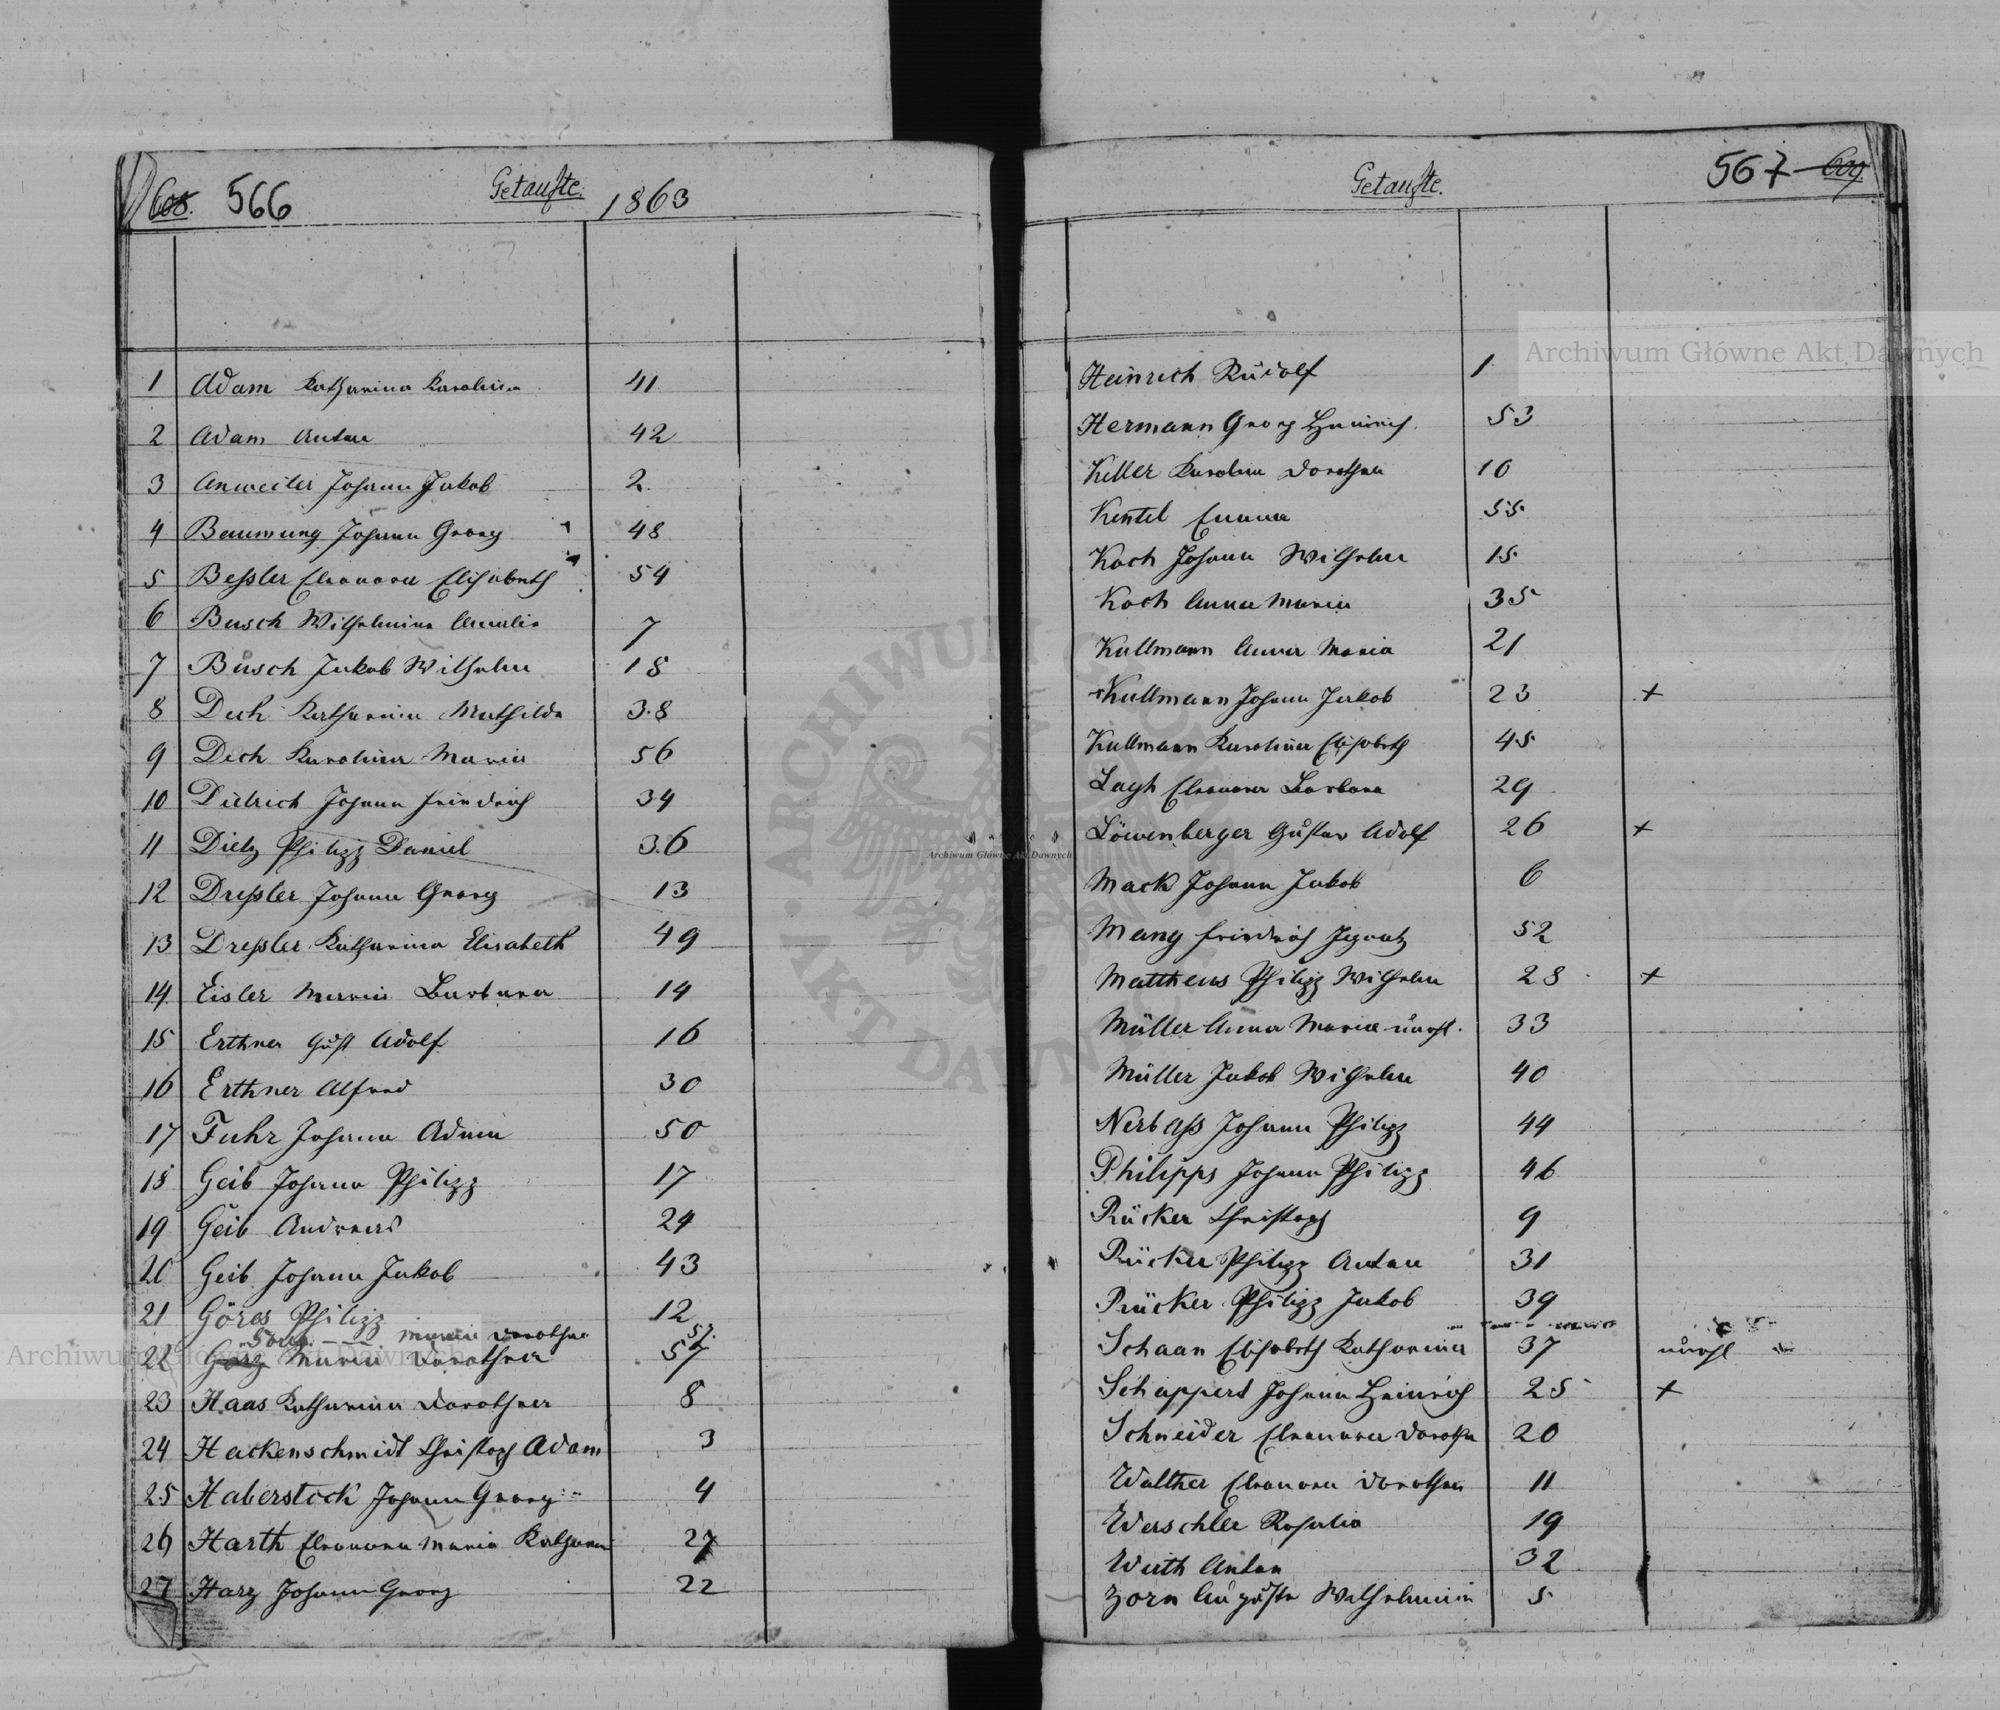 608. 566 Getaufte. 1863
1 Adam Katharina Karolina 41
2 Adam Anton 42
3 Anweiler Johann Jakob 2.
4 Baumung Johann Georg 48
5 Beßler Eleonora Elisabeth 54
6 Busch Wilhelmina Amalia 7
7 Busch Jakob Wilhelm 18
8 Dech Katharina Mathilda 38
9 Dech Karolina Maria 56
10 Dietrich Johann Friedrich 34
11 Dietz Philipp Daniel 36
12 Dreßler Johann Georg 13
13 Dreßler Katharina Elisabeth 49
14 Eisler Maria Barbara 14
15 Erthner Gust Adolf 16
16 Erthner Alfred 30
17 Fuhr Johann Adam 50
18 Geib Johann Philipp 17
19 Geib Andreas 24
20 Geib Johann Jakob 43
21 Göres Philipp 12
Maria Dorothea 57.
22 Görz Maria Dorothea 57
23 Haas Katharina Dorothea 8
24 Hackenschmidt Christoph Adam 3
25 Haberstock Johann Georg 4
26 Harth Eleonora Maria Katharina 27
27 Harz Johann Georg 22
Getaufte. 567 609.
Heinrich Rudolf 1
Hermann Georg Heinrich 53
Keller Karolina Dorothea 10
Kentel Emma 55
Koch Johann Wilhelm 15
Koch Anna Maria 35
Kullmann Anna Maria 21
Kullmann Johann Jakob 23 +
Kullmann Karolina Elisabeth 45
Eleonora Barbara 29
Löwenberger Gustav Adolf 26 +
Mack Johann Jakob 6
Mang Friedrich Ignatz 52
Mattheus Philipp Wilhelm 28 +
Müller Anna Maria unehl. 33
Müller Jakob Wilhelm 40
Nerbaß Johann Philipp 44
Philipps Johann Philipp 46
Rücker Christoph 9
Rücker Philipp Anton 31
Rücker Philipp Jakob 39
Schaan Elisabeth Katharina 37 unehl
Schappert Johann Heinrich 25 +
Schneider Eleonora Dorothea 20
Walther Eleonora Dorothea 11
Werschler Rosalia 19
Wirth Anton 32
Zorn Auguste Wilhelmina 5
Archiwum Główne Akt Dawnych
Archiwum Główne Akt Dawnych
Archiwum Główne Akt Dawnych
ARCHIWUM GŁÓWNE AKT DAWNYCH